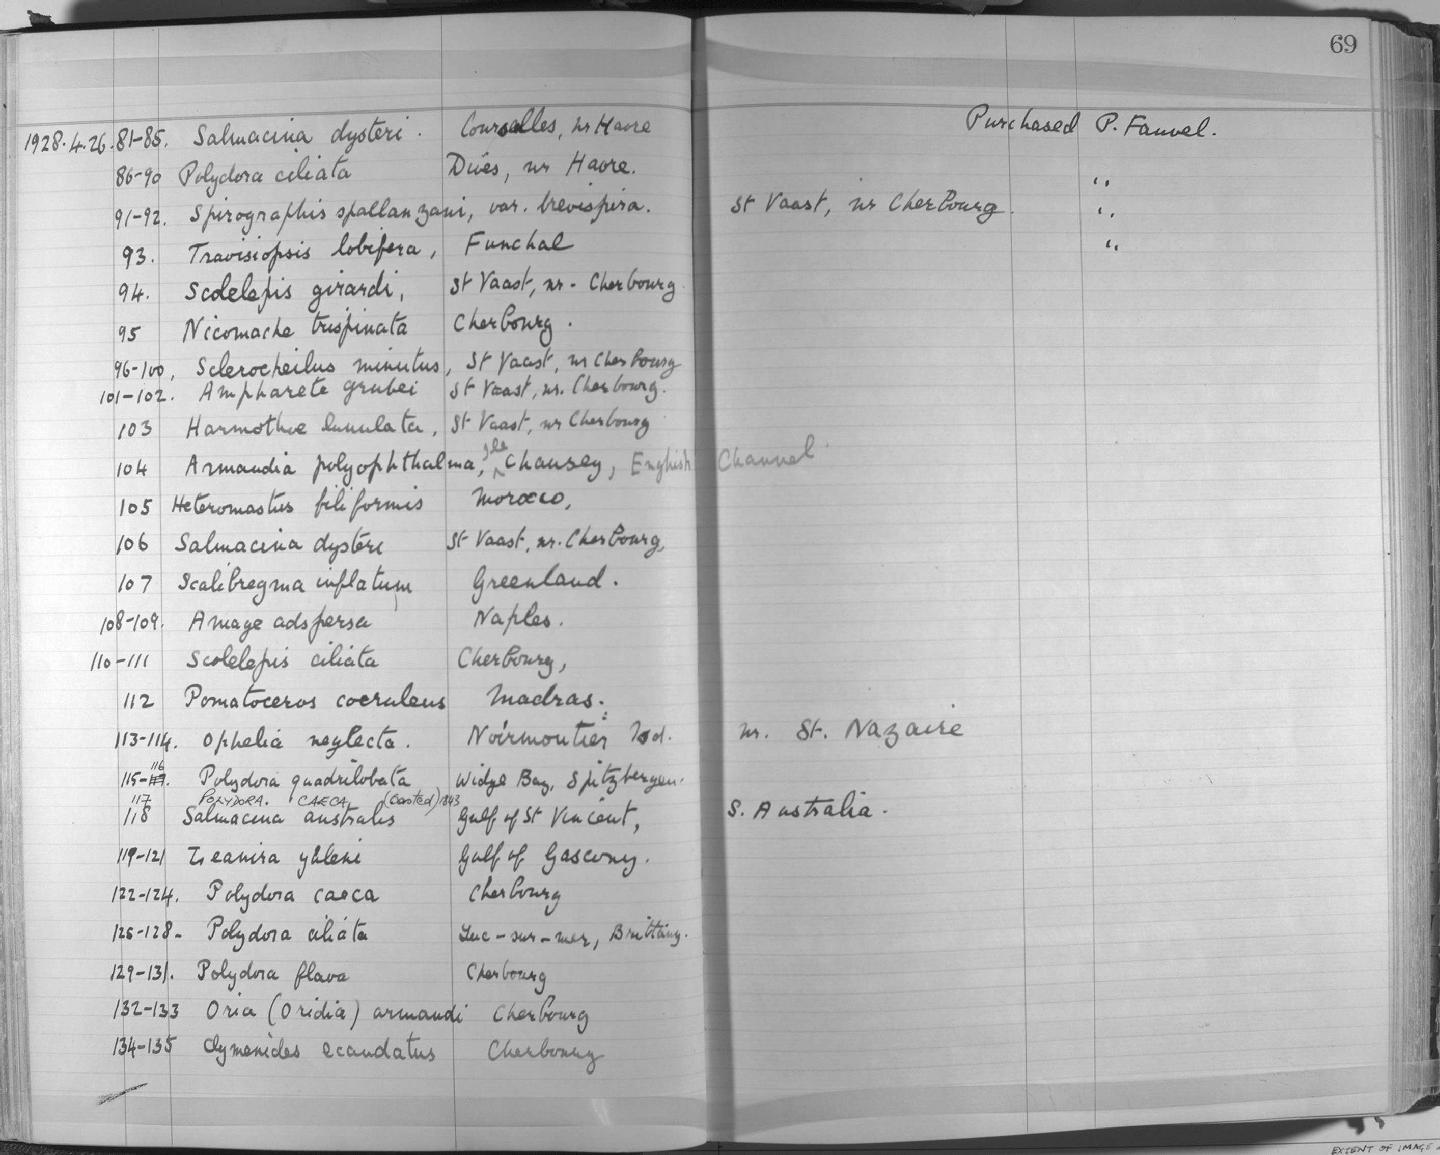 69
1928.4.26.81-85. Salmacina dysteri. Courselles, nr Havre Purchased P. Fauvel.
86-90 Polydora ciliata Dives, nr Havre. "
91-92. Spirographis spallanzani, var. brevispira. St Vaast, nr Cherbourg. "
93. Travisiopsis lobifera, Funchal "
94. Scolelepis girardi, St Vaast, nr. Cherbourg
95 Nicomache trispinata Cherbourg.
96-100, Sclerocheilus minutus, St Vaast, nr Cherbourg
101-102. Ampharete grubei St Vaast, nr. Cherbourg.
103 Harmothoe lunulata, St Vaast, nr Cherbourg
104 Armandia polyophthalma, Ile Chausey, English Channel
105 Heteromastus filiformis Morocco,
106 Salmacina dysteri St Vaast, nr. Cherbourg,
107 Scalibregma inflatum Greenland.
108-109. Amage adspersa Naples.
110-111 Scolelepis ciliata Cherbourg,
112 Pomatoceros coeruleus Madras.
113-114. Ophelia neglecta. Noirmoutier nr. St. Nazaire
115-116. Polydora quadrilobata Widge Bay, Spitzbergen.
117 POLYDORA. CAECA (Oersted) 1843
118 Salmacina australis Gulf of St Vincent, S. Australia.
119-121 Leanira yhleni Gulf of Gascony.
122-124. Polydora caeca Cherbourg
125-128- Polydora ciliata Luc-sur-mer, Brittany.
129-131. Polydora flava Cherbourg
132-133 Oria (Oridia) armandi Cherbourg
134-135 Clymenides ecaudatus Cherbourg
EXTENT OF IMAGE